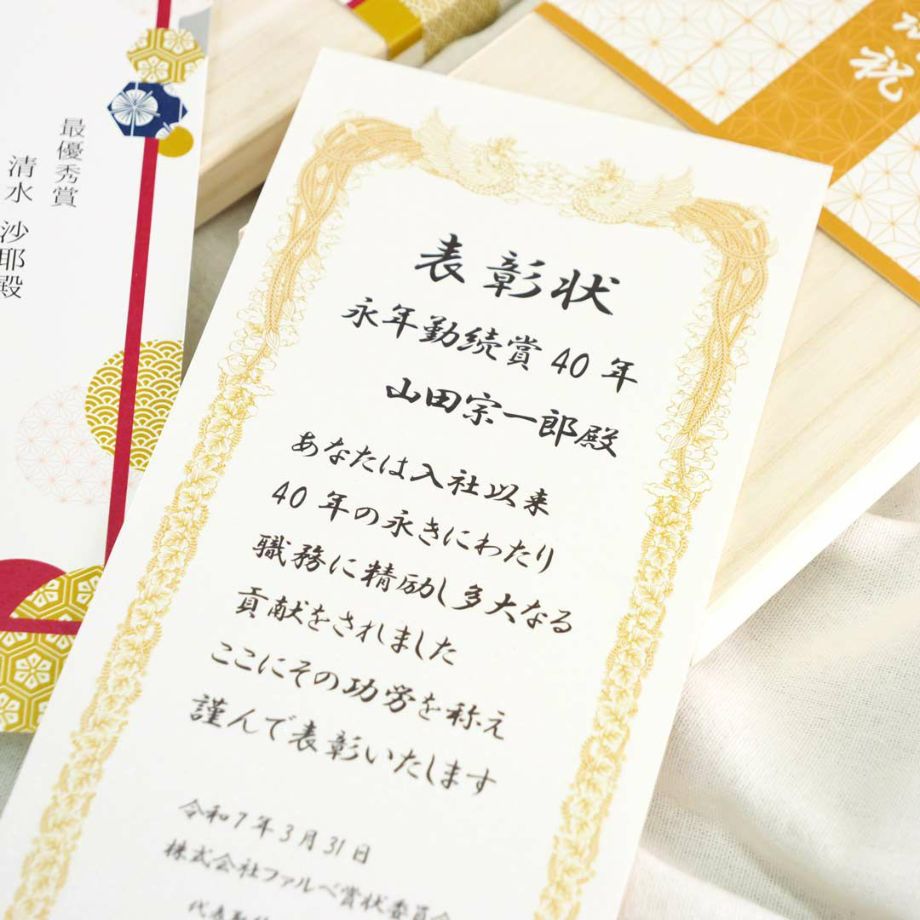 表彰状
永年勤続賞40年
山田宗一郎殿
あなたは入社以来
40年の永きにわたり
職務に精励し多大なる
貢献をされました
ここにその功労を称え
謹んで表彰いたします
令和7年3月31日
株式会社ファルベ賞状委員会
代表取
最優秀賞
清水 沙耶殿
祝